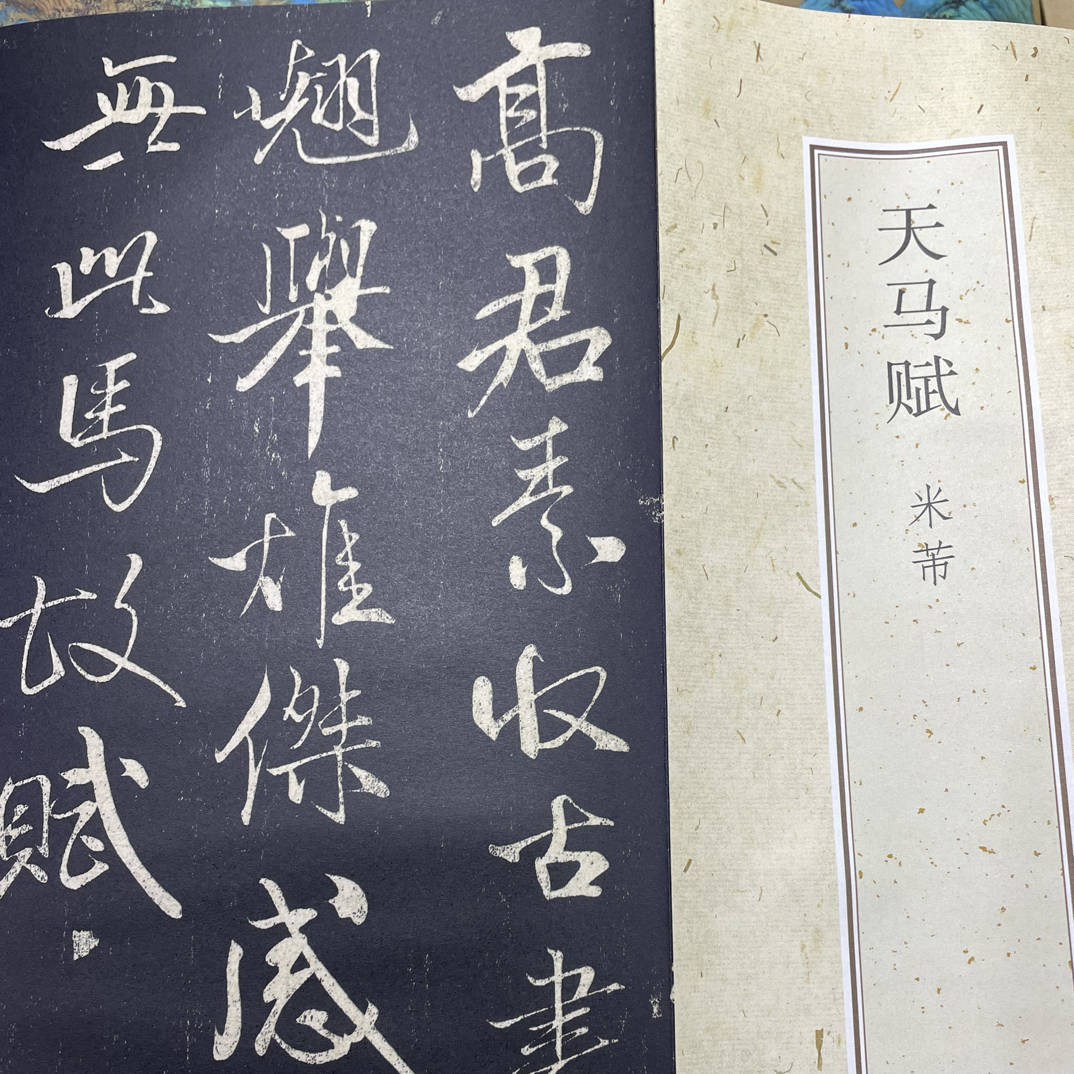 天马赋
米芾
高君素收古畫
翹舉雄傑感
無此馬故賦